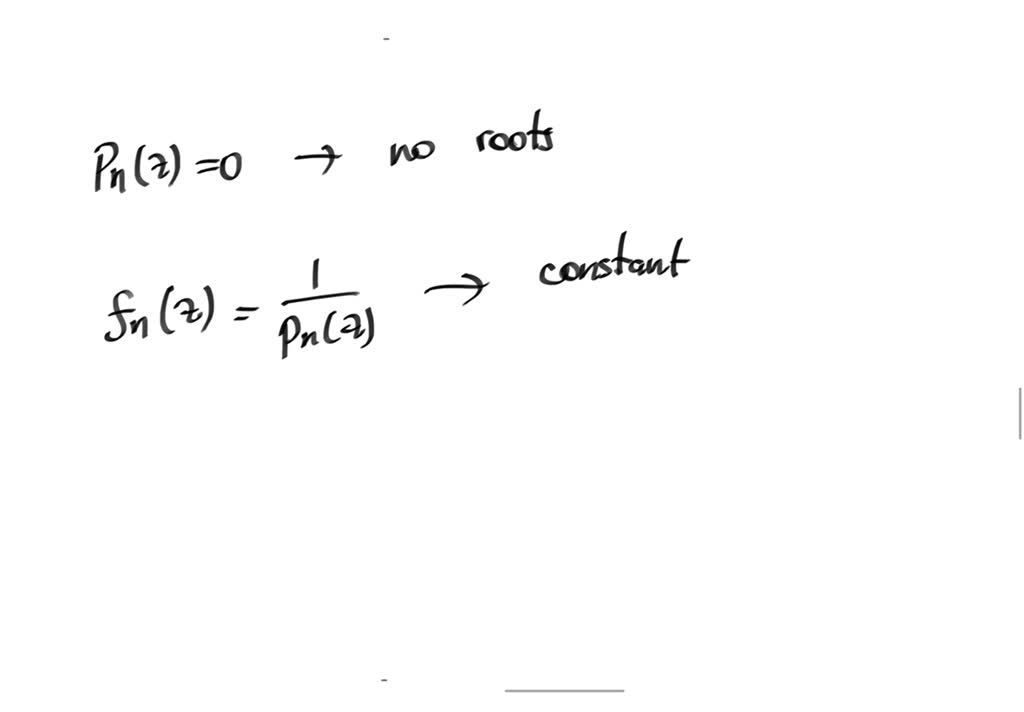 Pn(z)=0 → no roots
fn(z) = 1/Pn(z) → constant